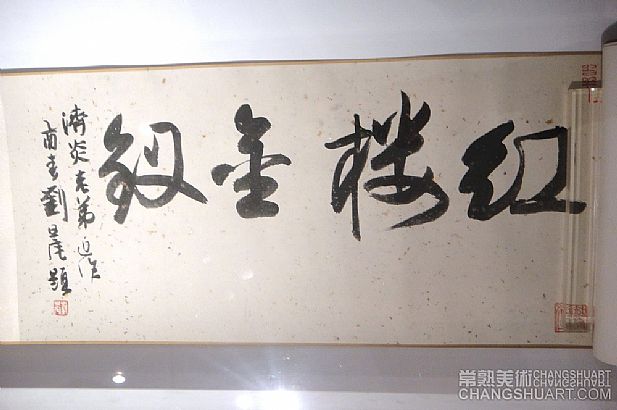 紅樓金釵
濟炎老弟近作
劉題
常熟美術 CHANGSHUART
CHANGSHUART.COM